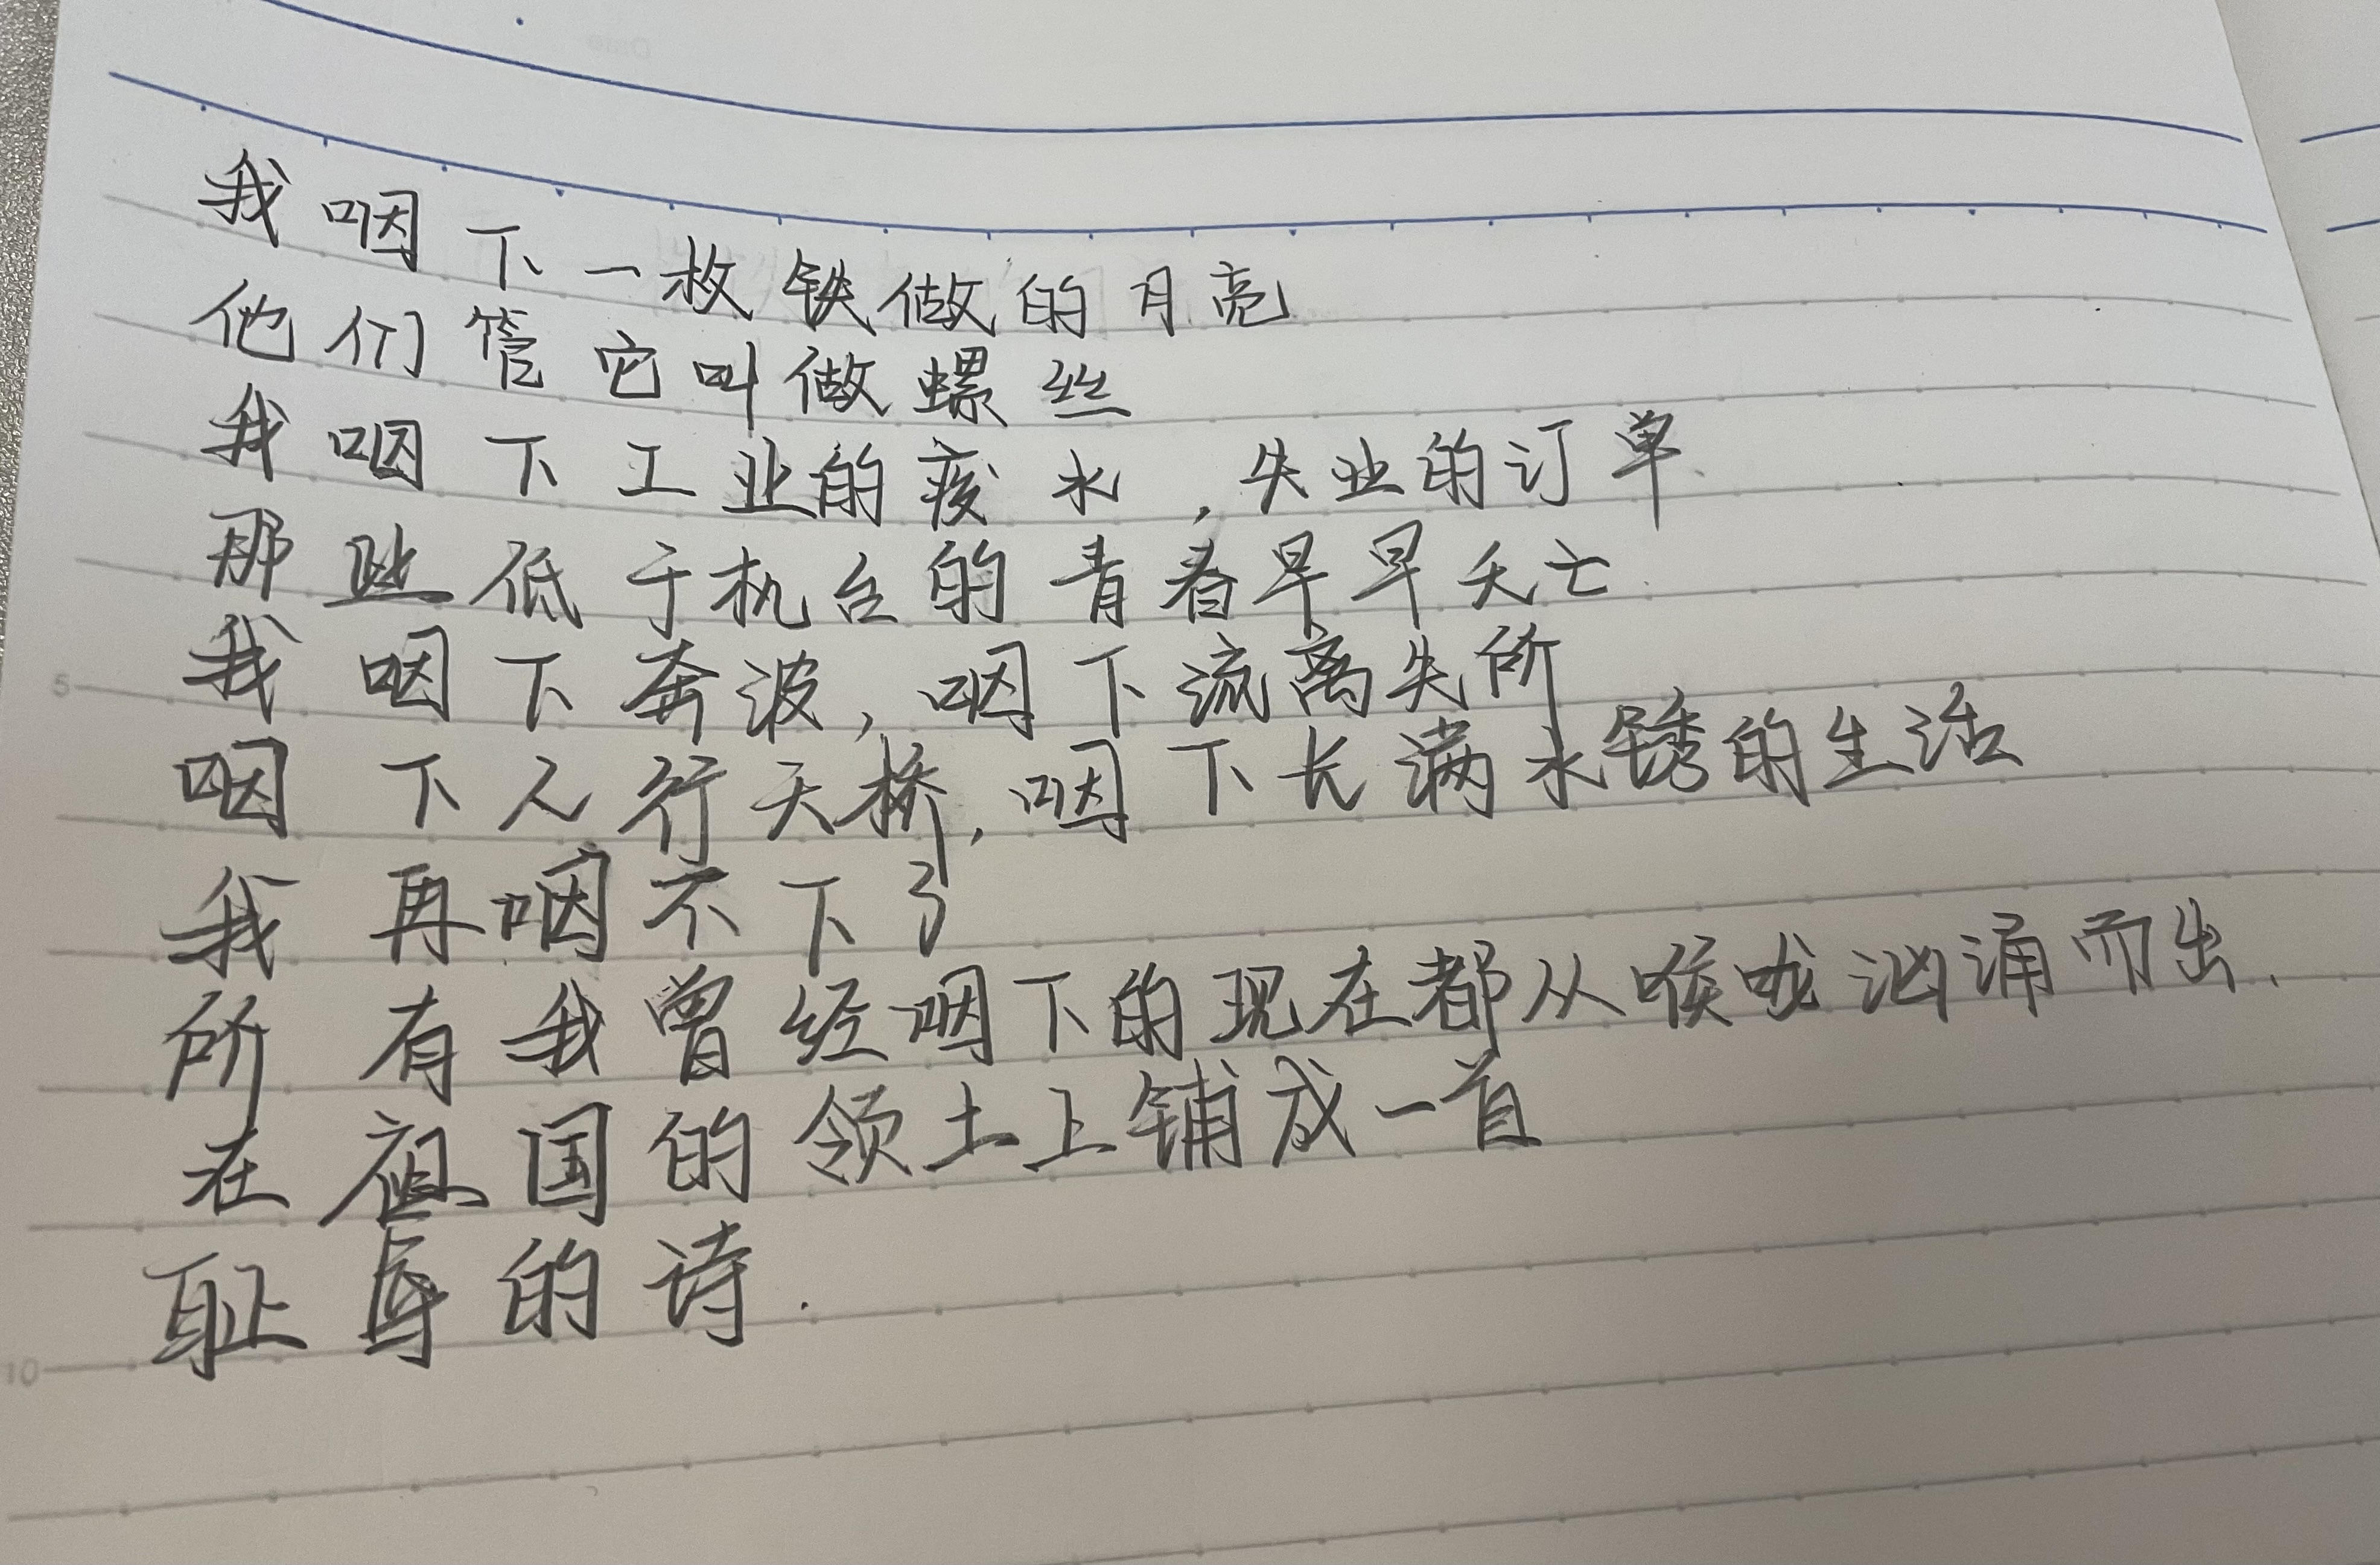 我咽下一枚铁做的月亮
他们管它叫做螺丝
我咽下工业的废水,失业的订单
那些低于机台的青春早早夭亡
我咽下奔波,咽下流离失所
咽下人行天桥,咽下长满水锈的生活
我再咽不下了
所有我曾经咽下的现在都从喉咙汹涌而出.
在祖国的领土上铺成一首
耻辱的诗.
5
10